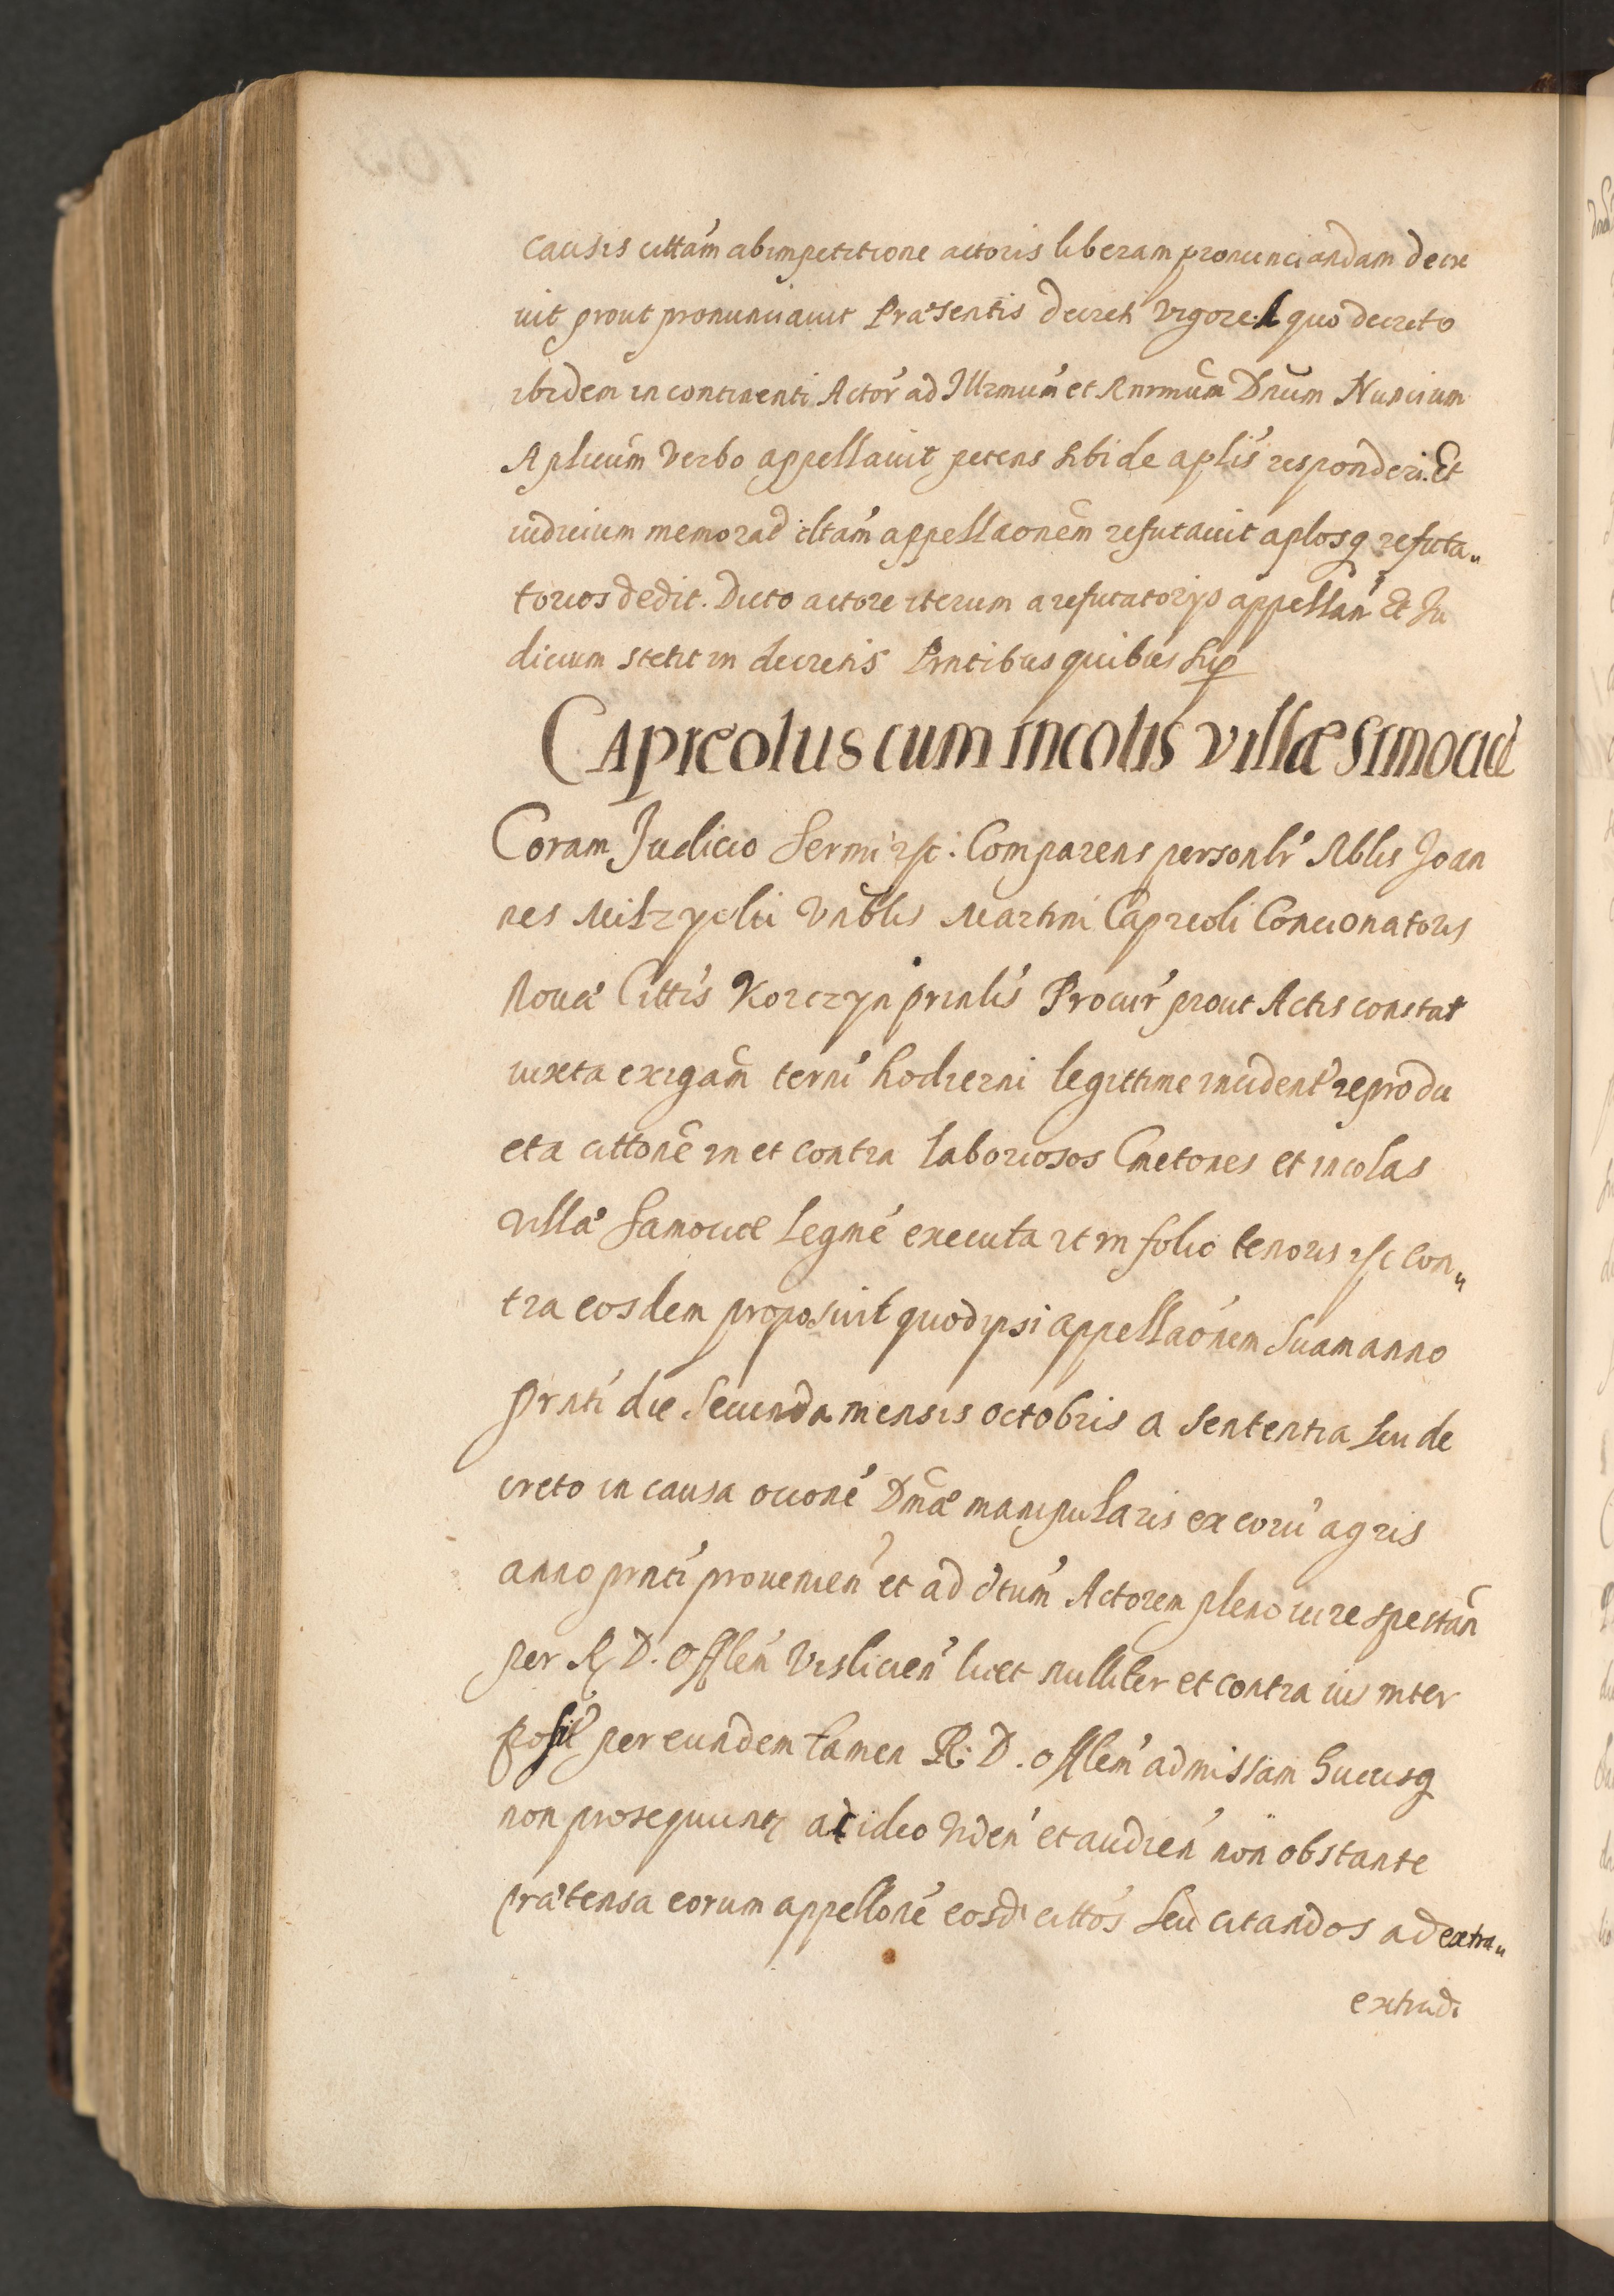 causis cittam ab impetitione actoris liberam pronunciandam decre
vit prout pronunciavit Præsentis decreti vigore. A quo decreto
ibidem in continenti Actor ad Illrmum et Rnrmum Dnum Nuncium
Aplicum verbo appellavit petens sibi de aplis responderi. Et
iudicium memorad dctam appellaonem refutavit aplosq refuta„
torios dedit. Dicto actore iterum a refutatorijs appellan Et Iu
dicium stetit in decretis Prntibus quibus sup
Capreolus cum incolis villæ Simocicé
Coram Judicio Sermi etc: Comparens personlr Nblis Joan
nes Vnblis Martini Capreoli Concionatoris
Novæ Cittis Korczyn prinlis Procur prout Actis constat
iuxta exigam terni hodierni legittime incident reprodu
cta cittone in et contra Laboriosos Cmetones et incolas
villæ Samocice Legme executa et in folio tenoris etc con„
tra eosdem proposuit quod ipsi appellaonem suam anno
prnti die secunda mensis octobris a sententia seu de
creto in causa ocione Dmæ manipularis ex eoru agris
anno prnti provenien et ad dtum Actorem pleno iure spectan
per R D. Offlem Vislicien licet nulliter et contra ius inter
posit per eundem tamen R: D. Offlem admissam hucusq
non prosequuntr ac ideo viden et audien non obstante
prætensa eorum appellone eosd cittos seu citandos ad extra„
extrad